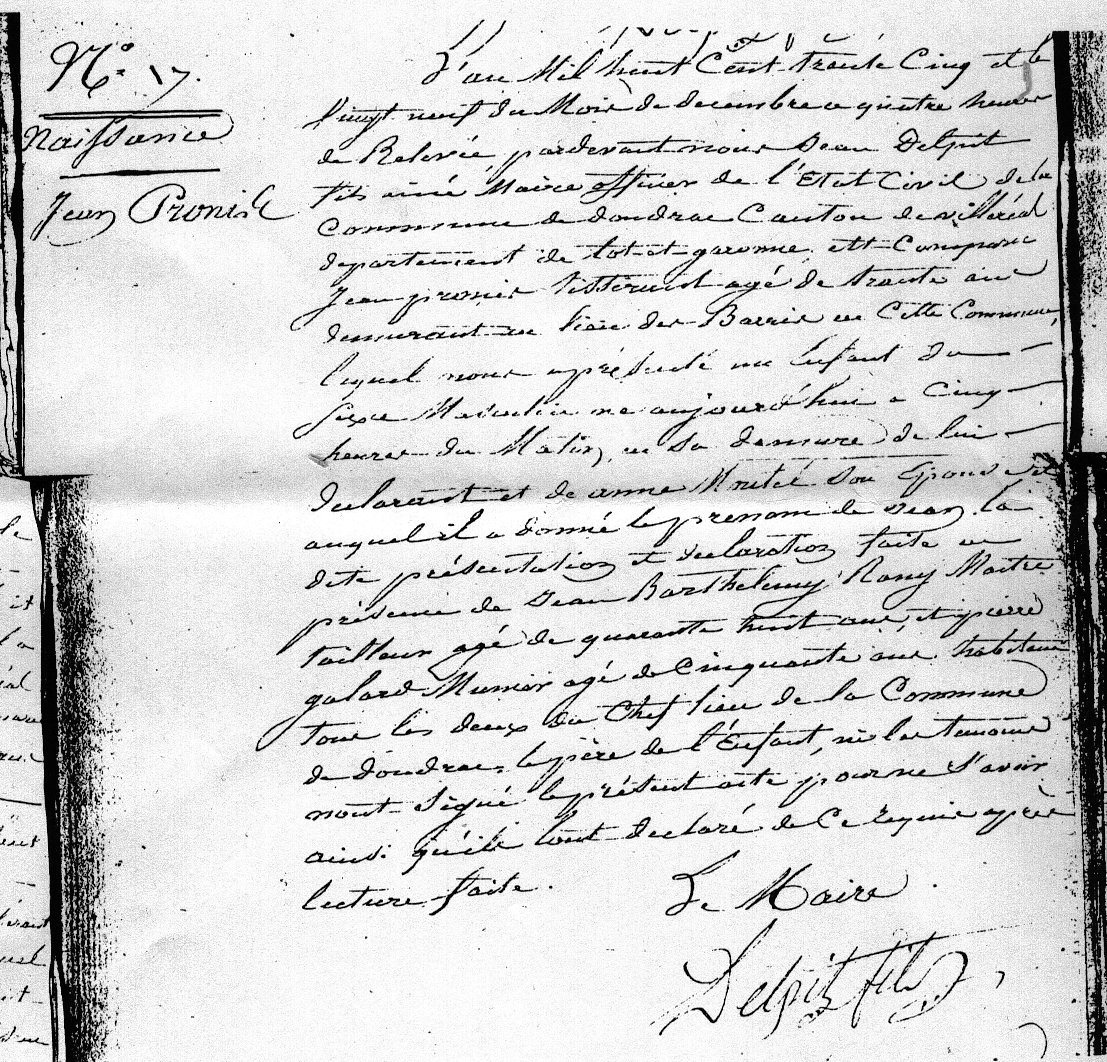 N° 17.
Naissance
Jean Pronis
L'an Mil huit Cent trante Cinq et le
vingt neuf du Mois de decembre a quatre heures
de Relevée pardevant nous Jean Delpit
fils ainé Maire officier de l'Etat Civil de la
Commune de doudrac Canton de villeréal
departement de lot-et-garonne, est Comparu
Jean pronis tisserant agé de trante ans
demurant au lieu des Barris en Cette Commune,
lequel nous a présenté un Enfant du
sexe Masculin né aujourd'hui a Cinq
heures du Matin, en sa demure de lui
declarant et de anne son Epouse et
auquel il a donné le prenom de Jean, la
dite présentation et declaration faite en
présence de Jean Barthelemy Rony Maitre
tailleur agé de quarante huit ans, et pierre
galard Munier agé de Cinquante ans habitans
tous les deux du Chef lieu de la Commune
de doudrac, le père de l'Enfant, ni les temoins
nont signé le présent acte pour ne savoir
ainsi qu'ils lont declaré de Ce requis après
lecture faite.
Le Maire
Delpit fils